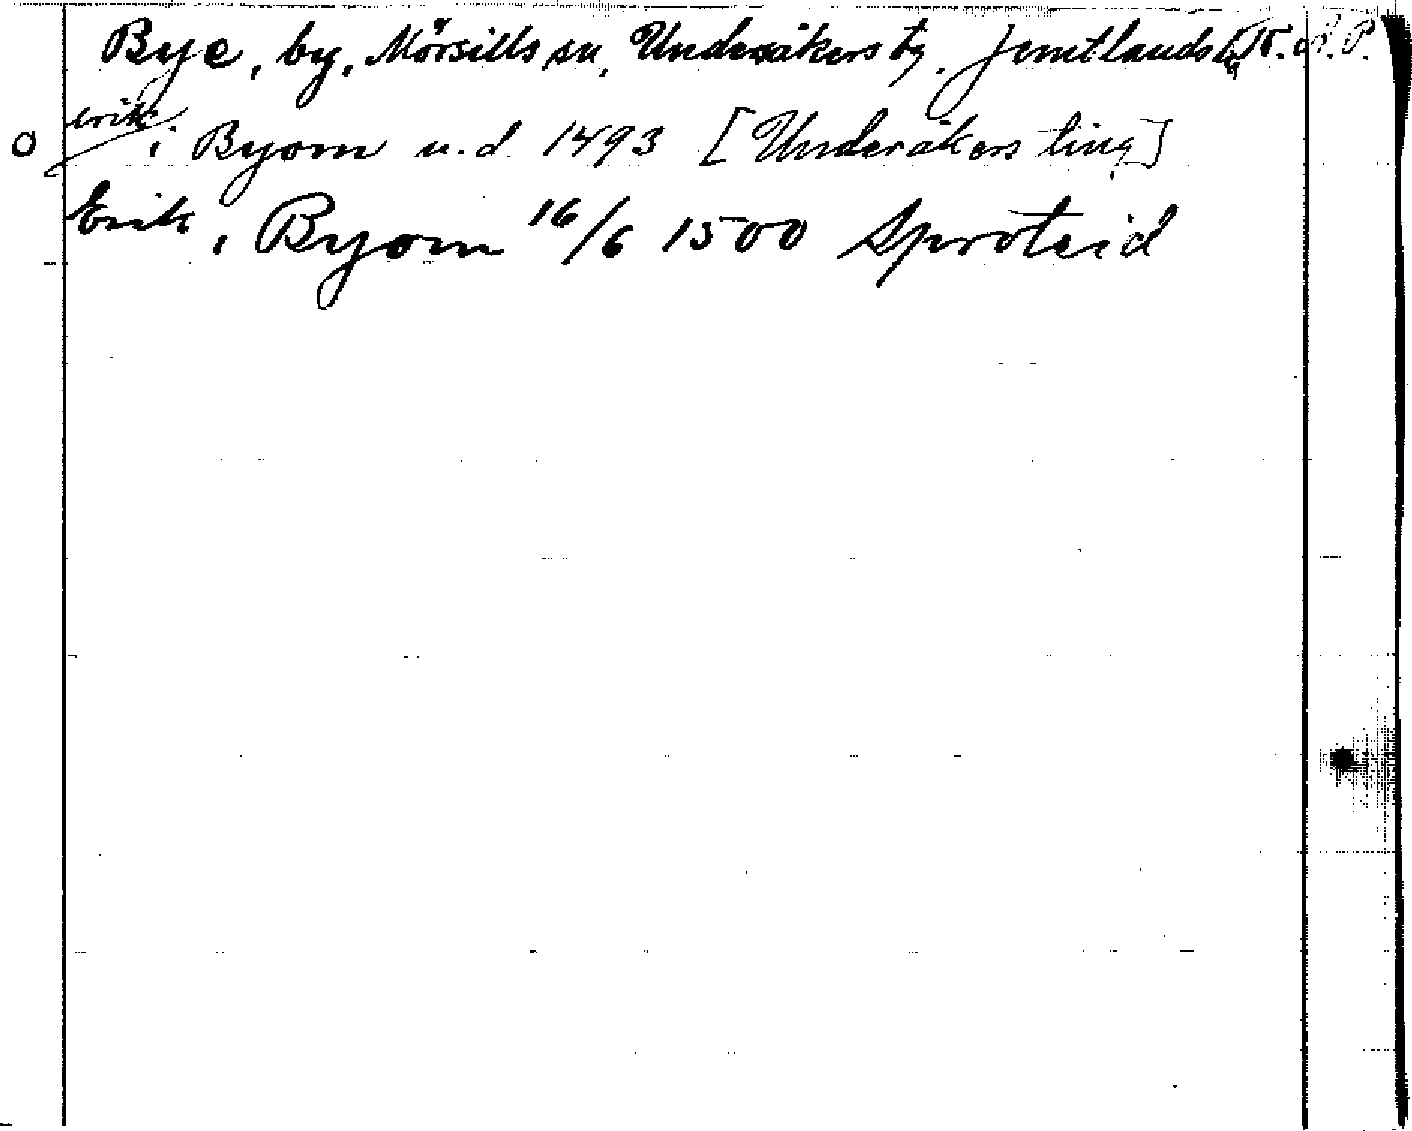 Bye, by, Mörsills sn, Undersåkers tg, Jemtlands l. R.A.P.
O Erik i Byom u.d. 1493 [Undersåkers ting]
Erik i Byom 16/6 1500 Sproteid